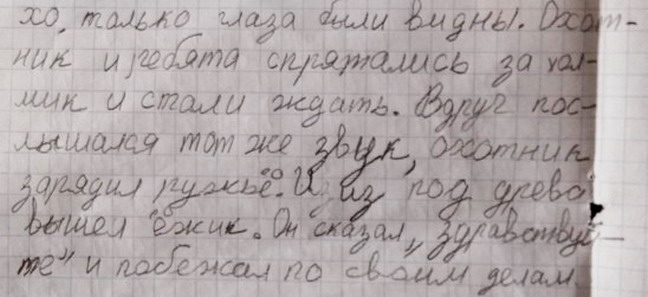 хо, только глаза были видны. Охот-
ник и ребята спрятались за хол-
мик и стали ждать. Вдруг пос-
лышался тот же звук, охотник
зарядил ружьё. И из под древа
вышел ёжик. Он сказал „здравствуй-
те" и побежал по своим делам.